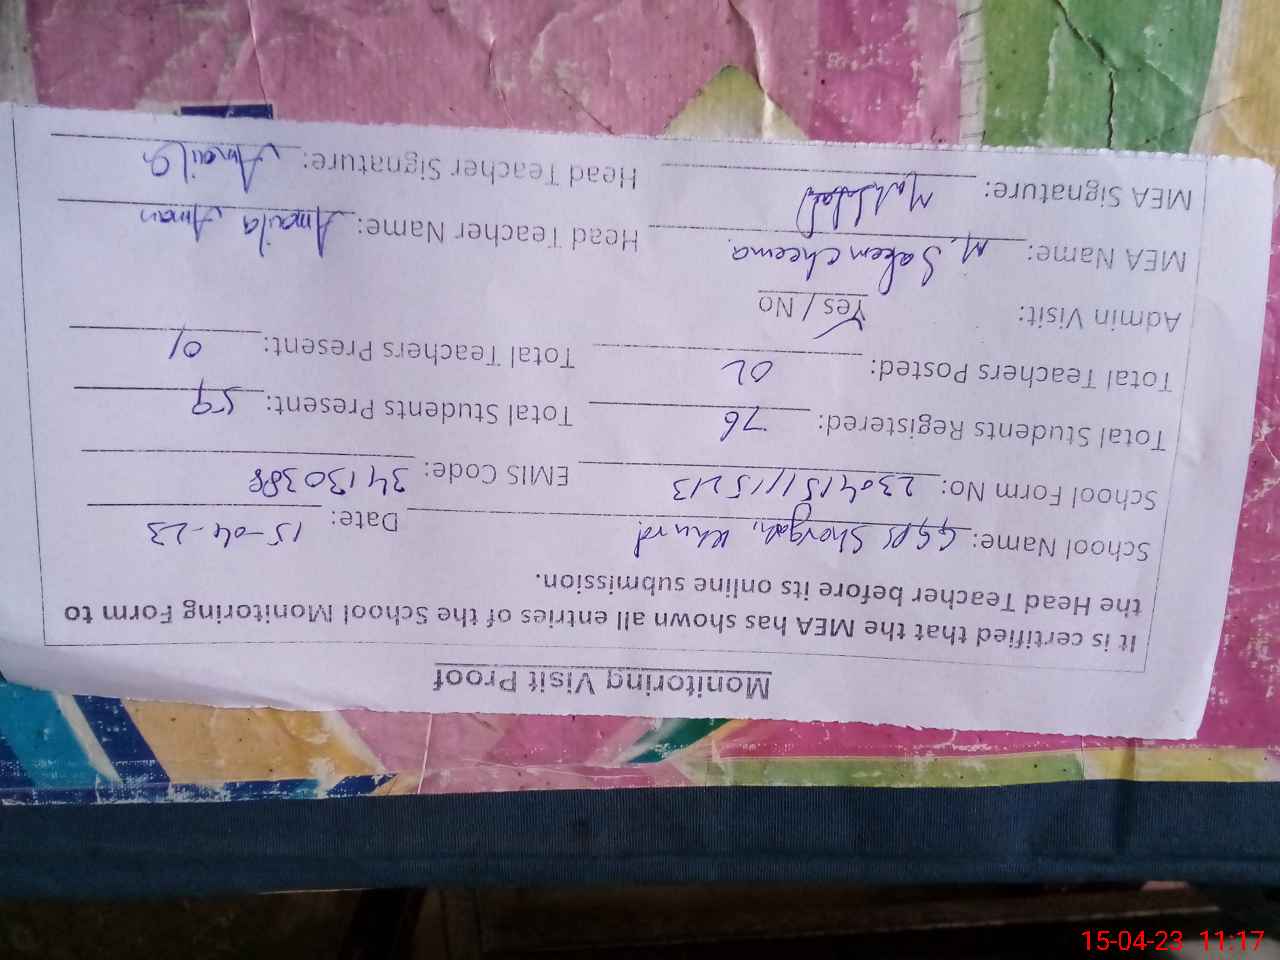 Monitoring Visit Proof
It is certified that the MEA has shown all entries of the School Monitoring Form to
the Head Teacher before its online submission.
School Name: GGPS Shorgah, Khurd Date: 15-04-23
School Form No: 23041511115213 EMIS Code: 34130388
Total Students Registered: 76 Total Students Present: 59
Total Teachers Posted: 02 Total Teachers Present: 01
Admin Visit: Yes / No
MEA Name: M. Saleem cheema. Head Teacher Name: Amaila Aman
MEA Signature: Head Teacher Signature: Amaila
15-04-23 11:17